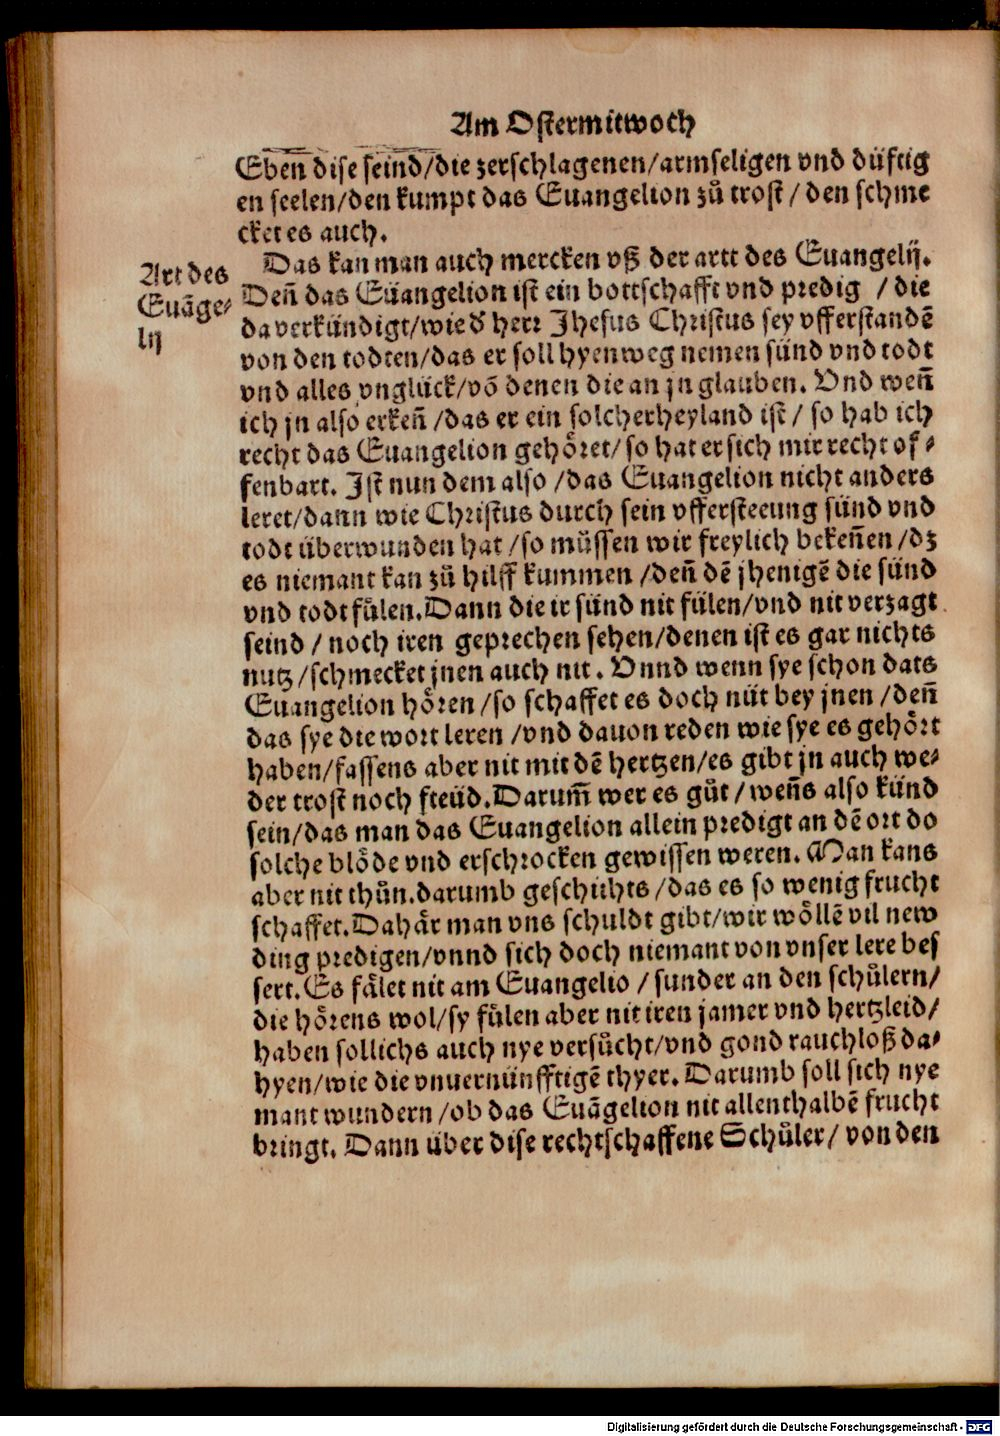 Am Ostermitwoch
Eben dise seind/die zerschlagenen/armseligen vnd düfftig
en seelen/den kumpt das Euangelion zů trost / den schme
cket es auch.
Art des
Euãge-
lij
Das kan man auch mercken vß der artt des Euangelij.
Deñ das Euangelion ist ein bottschafft vnd predig / die
da verkündigt/wie d̕ herr Jhesus Christus sey vfferstandẽ
von den todten/das er soll hyenweg nemen sünd vnd todt
vnd alles vnglück/võ denen die an jn glauben. Vnd weñ
ich jn also erkeñ /das er ein solcher heyland ist / so hab ich
recht das Euangelion gehöret/ so hat er sich mir recht of-
fenbart. Ist nun dem also /das Euangelion nicht anders
leret/dann wie Christus durch sein vffersteeung sünd vnd
todt überwunden hat /so müssen wir freylich bekeñen /dz
es niemant kan zů hilff kummen /deñ dẽ jhenigẽ die sünd
vnd todt fülen. Dann die ir sünd nit fülen/vnd nit verzagt
seind / noch iren geprechen sehen/denen ist es gar nichts
nutz /schmecket jnen auch nit. Vnnd wenn sye schon dats
Euangelion hören /so schaffet es doch nüt bey jnen /deñ
das sye die wort leren /vnd dauon reden wie sye es gehört
haben/fassens aber nit mit dẽ hertzen/es gibt jn auch we-
der trost noch freüd. Darum̃ wer es gůt / weñs also künd
sein/das man das Euangelion allein predigt an dẽ ort do
solche blöde vnd erschrocken gewissen weren. Man kans
aber nit thůn. darumb geschihts /das es so wenig frucht
schaffet. Dahär man vns schuldt gibt/wir wöllẽ vil new
ding predigen/vnnd sich doch niemant von vnser lere bes
sert. Es fälet nit am Euangelio / sunder an den schůlern/
die hörens wol/sy fülen aber nit iren jamer vnd hertzleid/
haben sollichs auch nye versůcht/vnd gond rauchloß da-
hyen/wie die vnuernünfftigẽ thyer. Darumb soll sich nye
mant wundern /ob das Euãgelion nit allenthalbẽ frucht
bringt. Dann über dise rechtschaffene Schůler/ von den
Digitalisierung gefördert durch die Deutsche Forschungsgemeinschaft - DFG